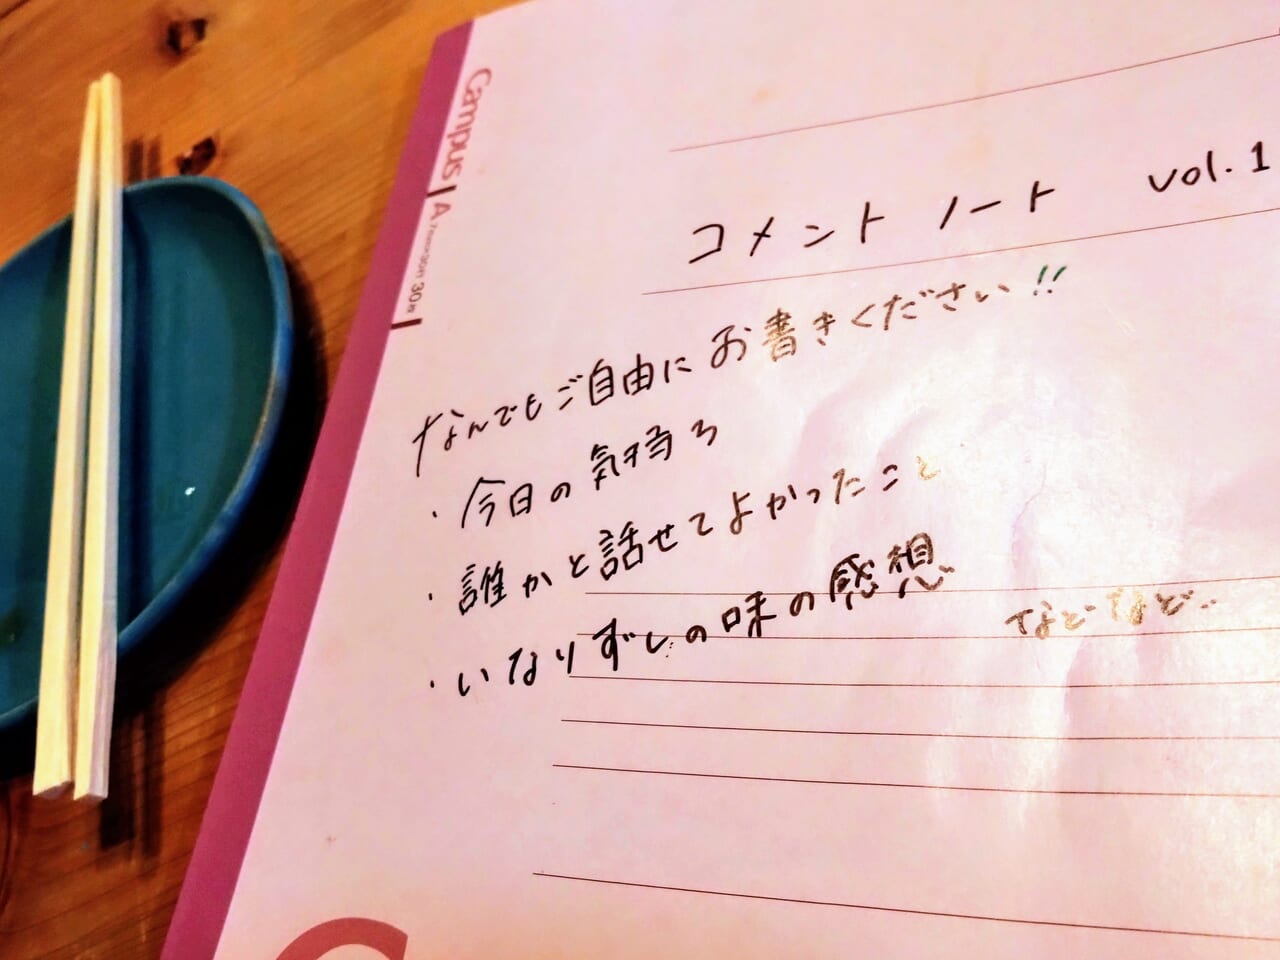 Campus
A 7mm×30行 30枚
コメント ノート vol.1
なんでもご自由にお書きください!!
・今日の気持ち
・誰かと話せてよかったこと
・いなりずしの味の感想
などなど..